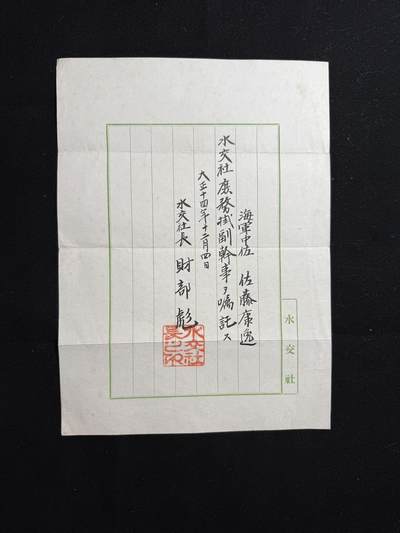 海軍中佐 佐藤康逸
水交社庶務掛副幹事ヲ嘱託ス
大正十四年十二月四日
水交社長 財部彪
水交社
長之印
水交社